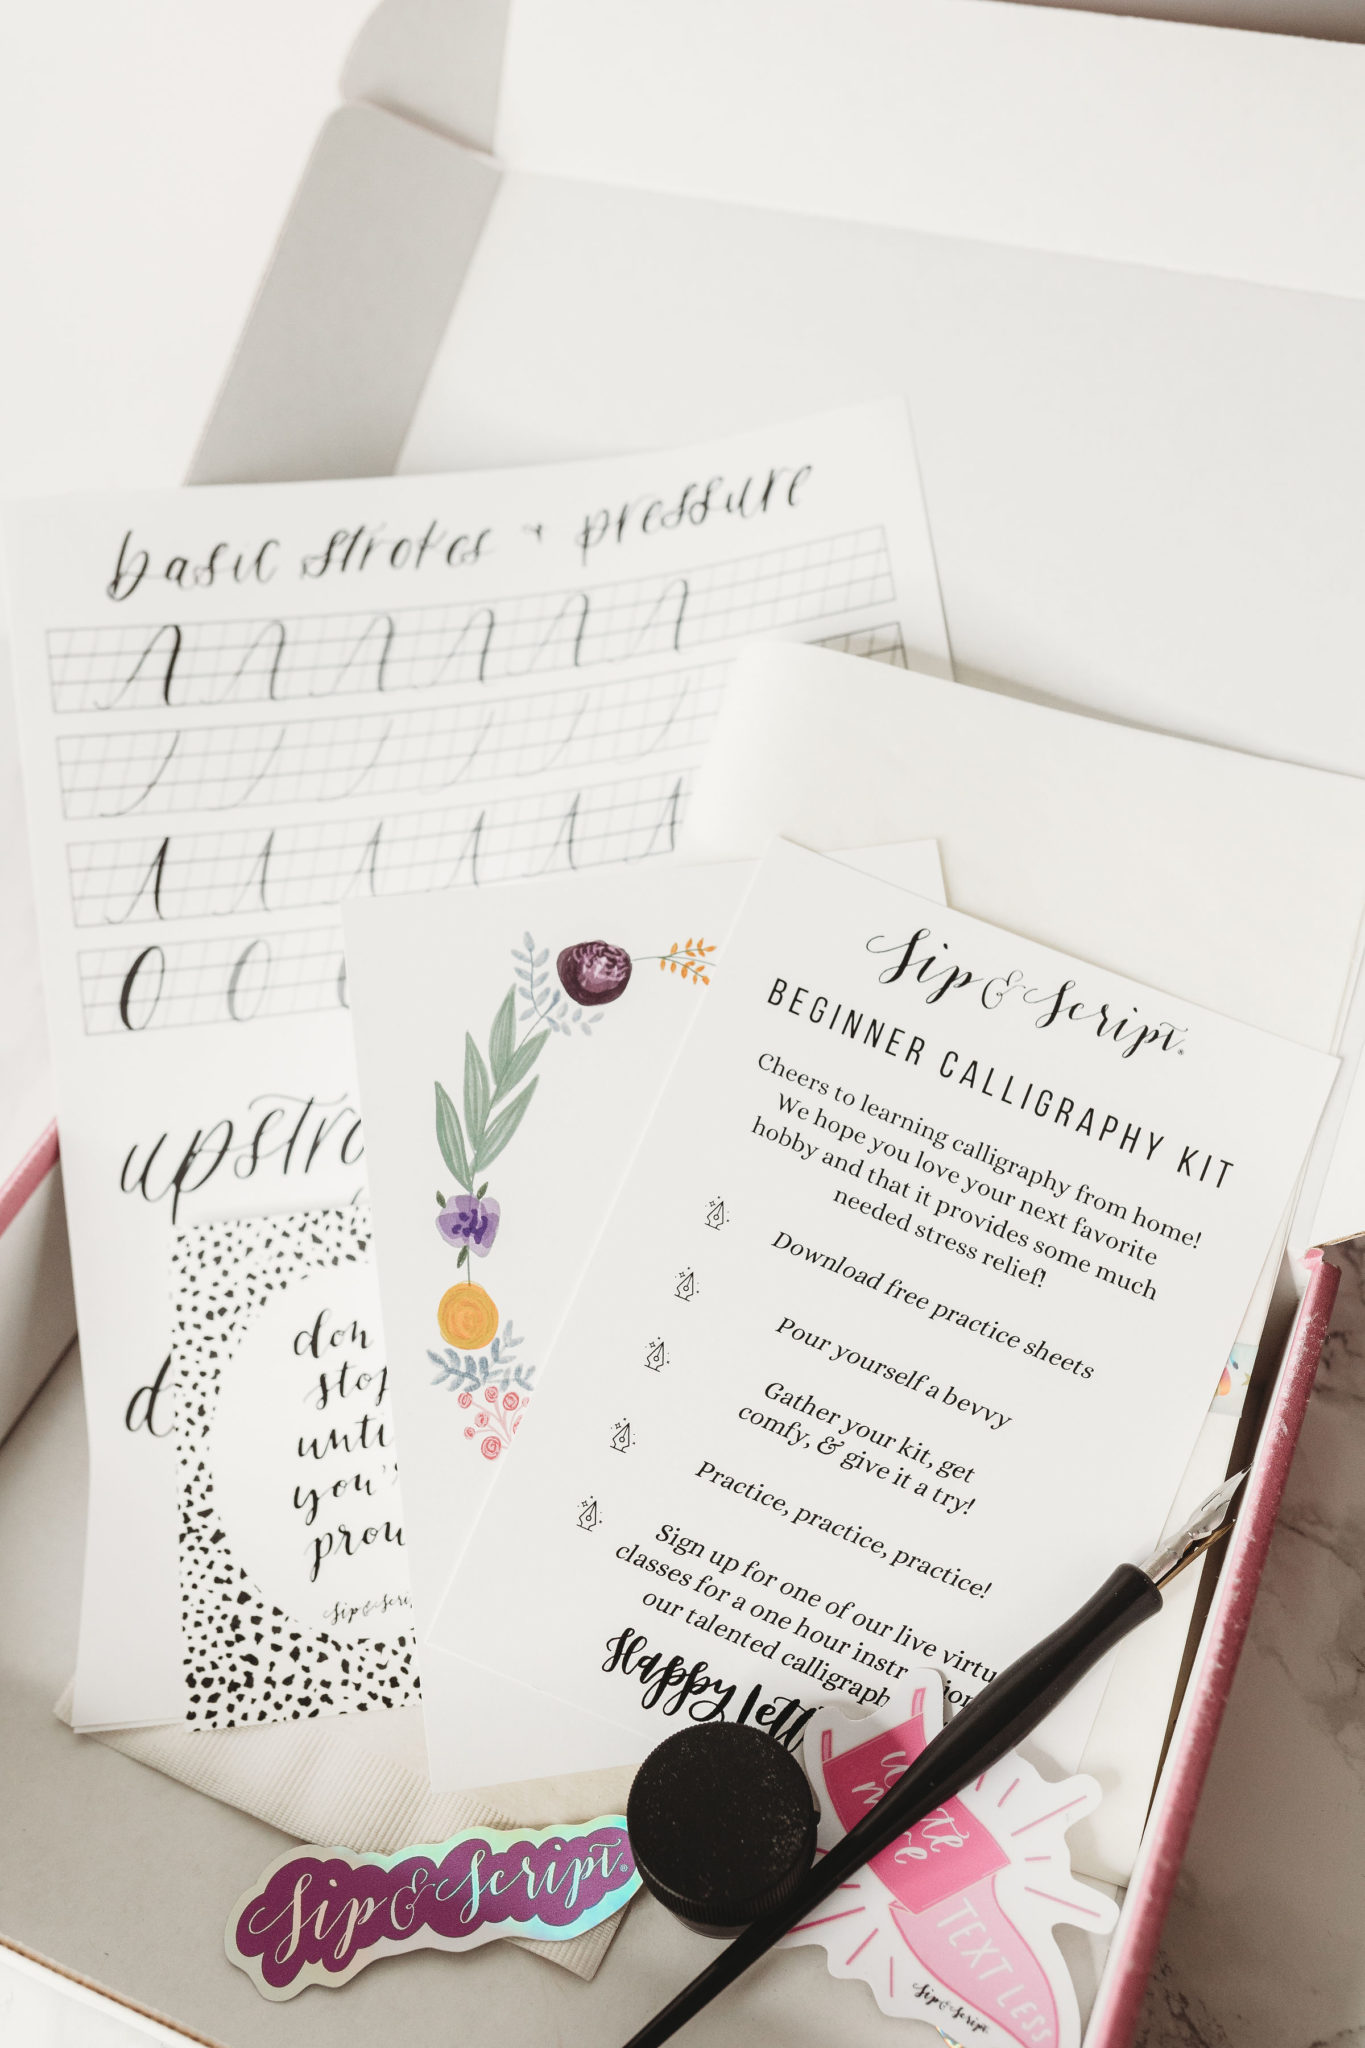 basic strokes + pressure
upstro
d
don
stop
until
you's
prou
Sip & Script
Sip & Script®
BEGINNER CALLIGRAPHY KIT
Cheers to learning calligraphy from home!
We hope you love your next favorite
hobby and that it provides some much
needed stress relief!
Download free practice sheets
Pour yourself a bevvy
Gather your kit, get
comfy, & give it a try!
Practice, practice, practice!
Sign up for one of our live virtu
classes for a one hour instr ion
our talented calligraph
Happy lett
Sip & Script®
write
more
TEXT LESS
Sip & Script